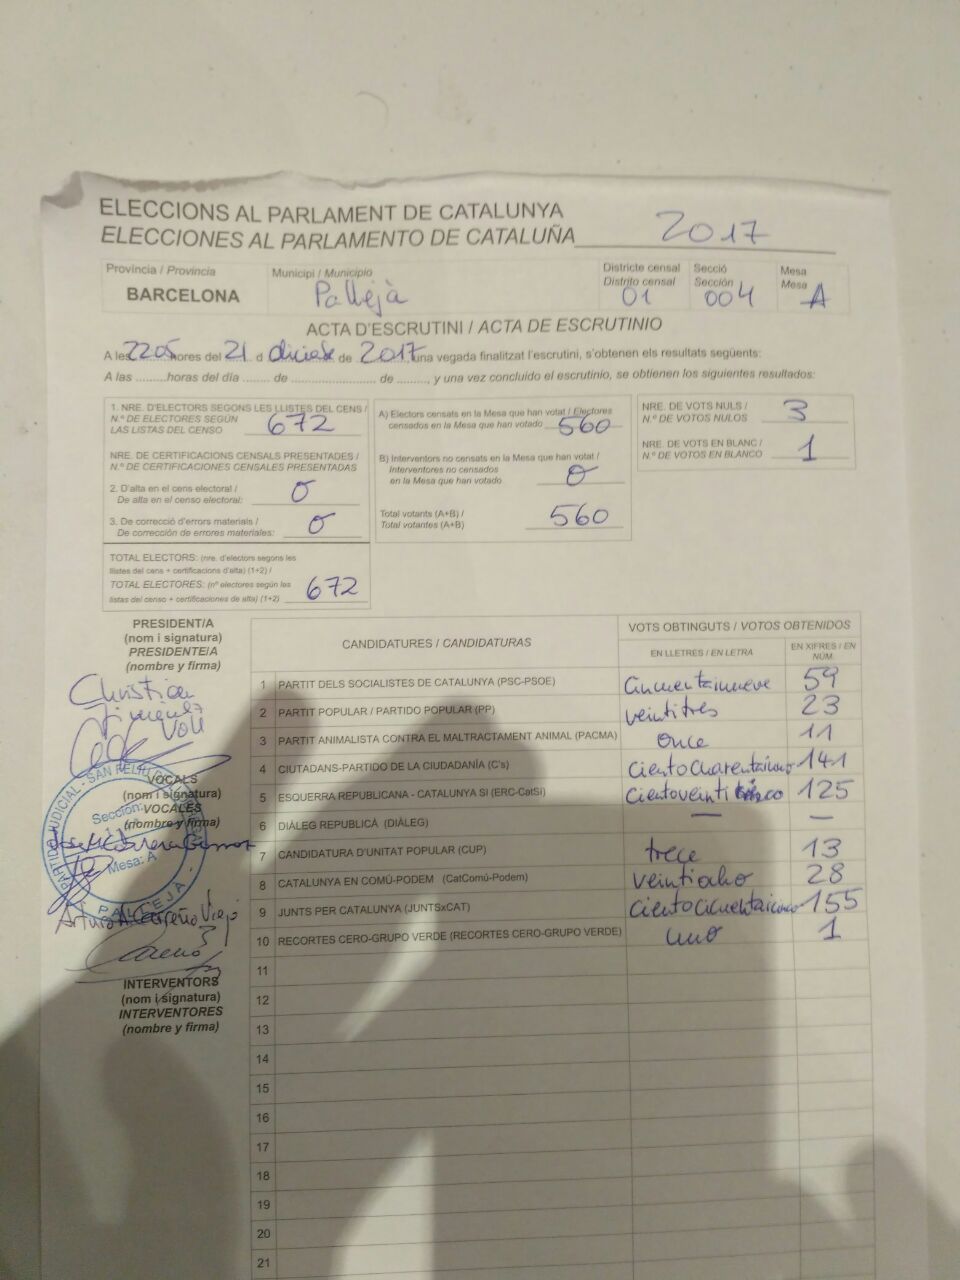 ELECCIONS AL PARLAMENT DE CATALUNYA
ELECCIONES AL PARLAMENTO DE CATALUÑA 2017
Província / Provincia
BARCELONA
Municipi / Municipio
Pallejà
Districte censal
Distrito censal
01
Secció
Sección
004
Mesa
Mesa
A
ACTA D'ESCRUTINI / ACTA DE ESCRUTINIO
A les 2205 hores del 21 d de 2017 una vegada finalitzat l'escrutini, s'obtenen els resultats següents:
A las .........horas del día ....... de ........................ de ........, y una vez concluido el escrutinio, se obtienen los siguientes resultados:
1. NRE. D'ELECTORS SEGONS LES LLISTES DEL CENS /
N.º DE ELECTORES SEGÚN
LAS LISTAS DEL CENSO 672
NRE. DE CERTIFICACIONS CENSALS PRESENTADES /
N.º DE CERTIFICACIONES CENSALES PRESENTADAS
2. D'alta en el cens electoral /
De alta en el censo electoral: 0
3. De correcció d'errors materials /
De corrección de errores materiales: 0
TOTAL ELECTORS: (nre. d'electors segons les
llistes del cens + certificacions d'alta) (1+2) /
TOTAL ELECTORES: (nº electores según las
listas del censo + certificaciones de alta) (1+2) 672
A) Electors censats en la Mesa que han votat / Electores
censados en la Mesa que han votado 560
B) Interventors no censats en la Mesa que han votat /
Interventores no censados
en la Mesa que han votado 0
Total votants (A+B) /
Total votantes (A+B) 560
NRE. DE VOTS NULS /
N.º DE VOTOS NULOS 3
NRE. DE VOTS EN BLANC /
N.º DE VOTOS EN BLANCO 1
PRESIDENT/A
(nom i signatura)
PRESIDENTE/A
(nombre y firma)
Christian
VOCALS
(nom i signatura)
VOCALES
(nombre y firma)
PARTIDO JUDICIAL - SAN FELIU
Sección:
Mesa: A
PALLEJA
Arturo
INTERVENTORS
(nom i signatura)
INTERVENTORES
(nombre y firma)
CANDIDATURES / CANDIDATURAS
VOTS OBTINGUTS / VOTOS OBTENIDOS
EN LLETRES / EN LETRA
EN XIFRES / EN
NÚM.
1 PARTIT DELS SOCIALISTES DE CATALUNYA (PSC-PSOE) cincuentainueve 59
2 PARTIT POPULAR / PARTIDO POPULAR (PP) veintitres 23
3 PARTIT ANIMALISTA CONTRA EL MALTRACTAMENT ANIMAL (PACMA) once 11
4 CIUTADANS-PARTIDO DE LA CIUDADANÍA (C's) 141
5 ESQUERRA REPUBLICANA - CATALUNYA SI (ERC-CatSí) 125
6 DIÀLEG REPUBLICÀ (DIÀLEG) — —
7 CANDIDATURA D'UNITAT POPULAR (CUP) trece 13
8 CATALUNYA EN COMÚ-PODEM (CatComú-Podem) veintiocho 28
9 JUNTS PER CATALUNYA (JUNTSxCAT) 155
10 RECORTES CERO-GRUPO VERDE (RECORTES CERO-GRUPO VERDE) uno 1
11
12
13
14
15
16
17
18
19
20
21